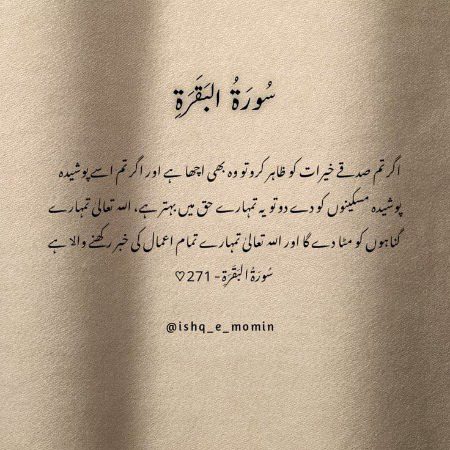 سُورَةُ البَقَرَةِ
اگر تم صدقے خیرات کو ظاہر کرو تو وہ بھی اچھا ہے اور اگر تم اسے پوشیدہ
پوشیدہ مسکینوں کو دے دو تو یہ تمہارے حق میں بہتر ہے، اللہ تعالیٰ تمہارے
گناہوں کو مٹا دے گا اور اللہ تعالیٰ تمہارے تمام اعمال کی خبر رکھنے والا ہے
سُورَةُ البَقَرَةِ - 271 ♡
@ishq_e_momin